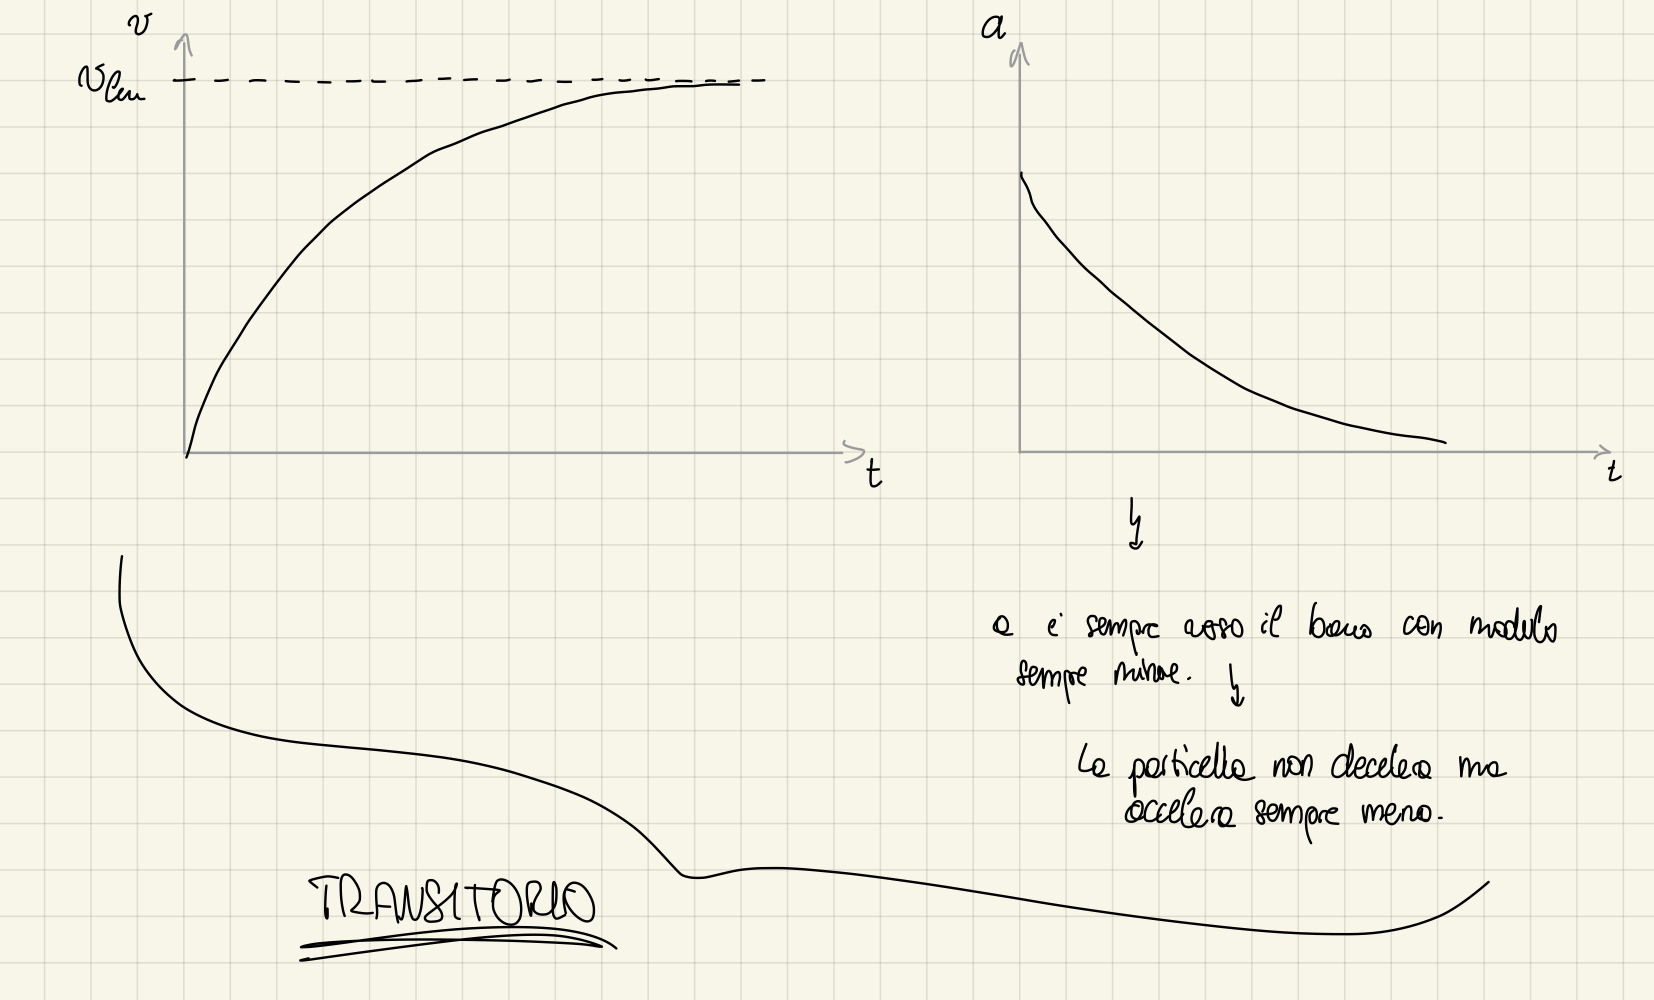 v
v lim
t
a
t
a è sempre verso il basso con modulo
sempre minore.
La particella non decelera ma
accelera sempre meno.
TRANSITORIO